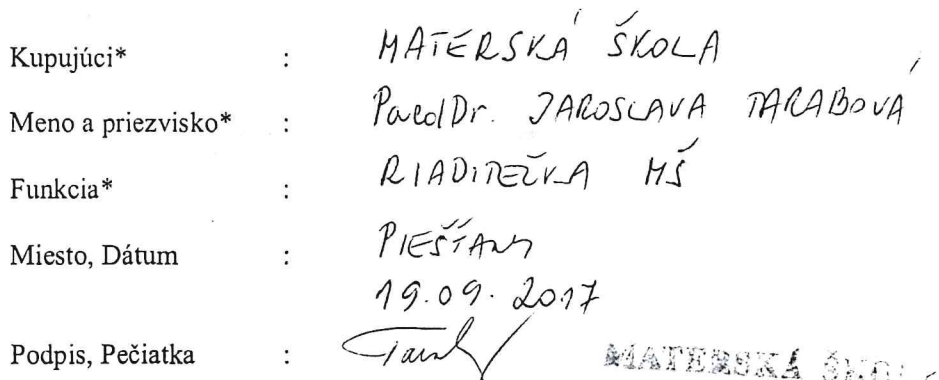 Kupujúci* : MATERSKÁ ŠKOLA
Meno a priezvisko* : PaedDr. JAROSLAVA TARABOVÁ
Funkcia* : RIADITEĽKA MŠ
Miesto, Dátum : PIEŠŤANY
19.09.2017
Podpis, Pečiatka :
MATERSKÁ